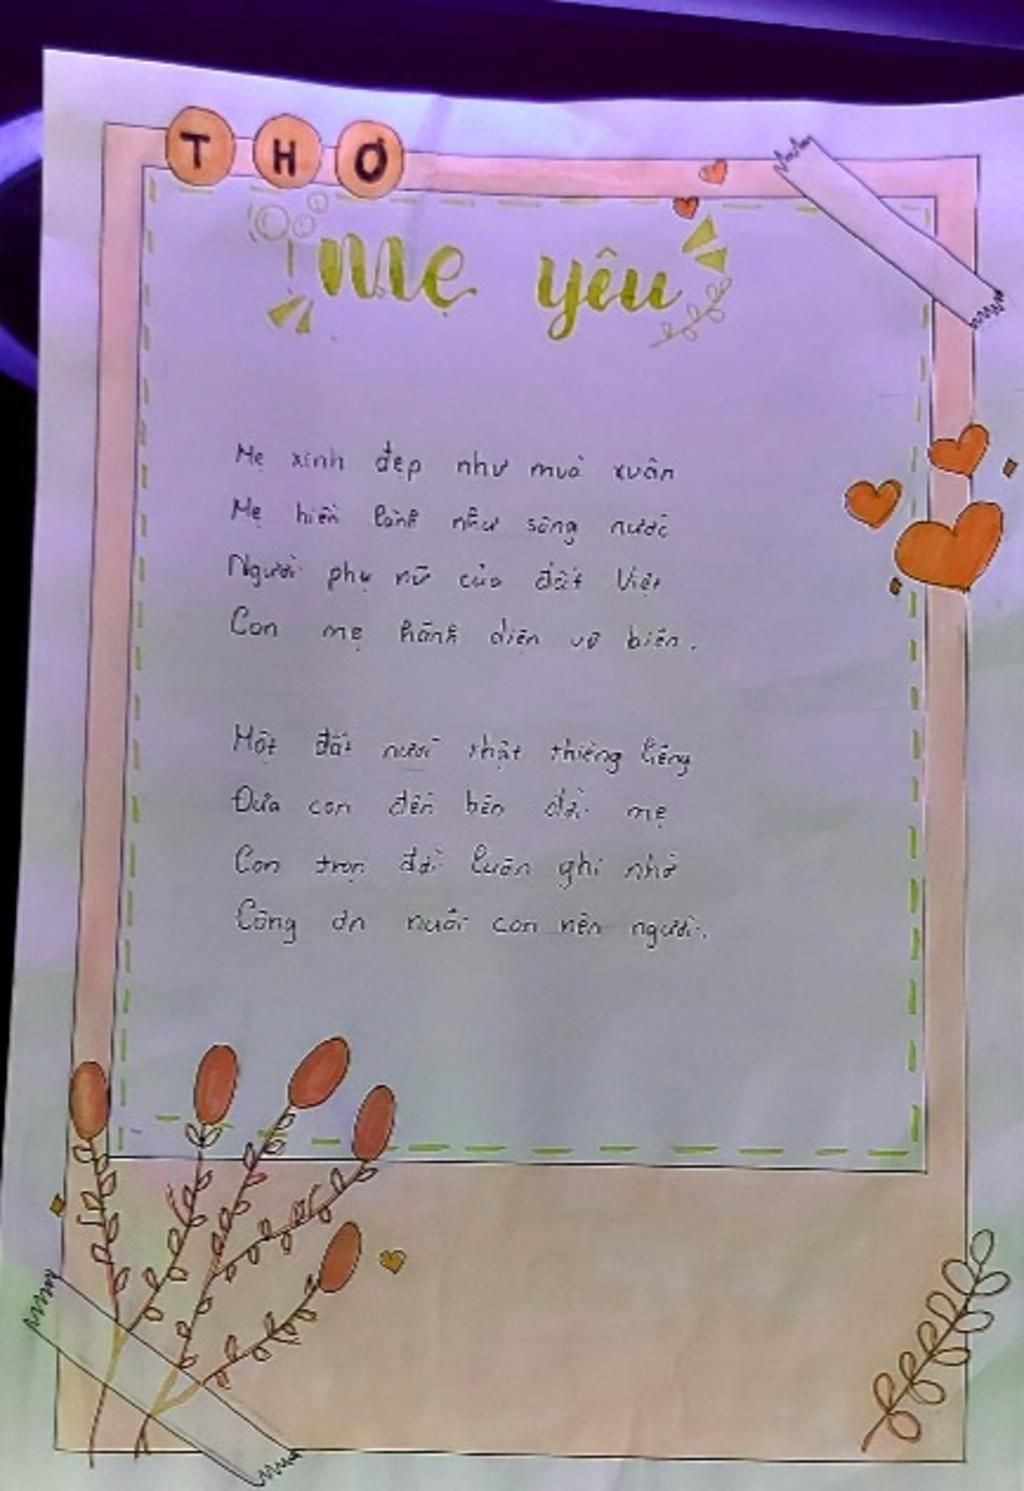 THƠ
Mẹ yêu
Mẹ xinh đẹp như mùa xuân
Mẹ hiền lành như sông nước
Người phụ nữ của đất Việt
Con mẹ hãnh diện vô biên.
Một đất nước thật thiêng liêng
Đưa con đến bên đời mẹ
Con trọn đời luôn ghi nhớ
Công ơn nuôi con nên người.